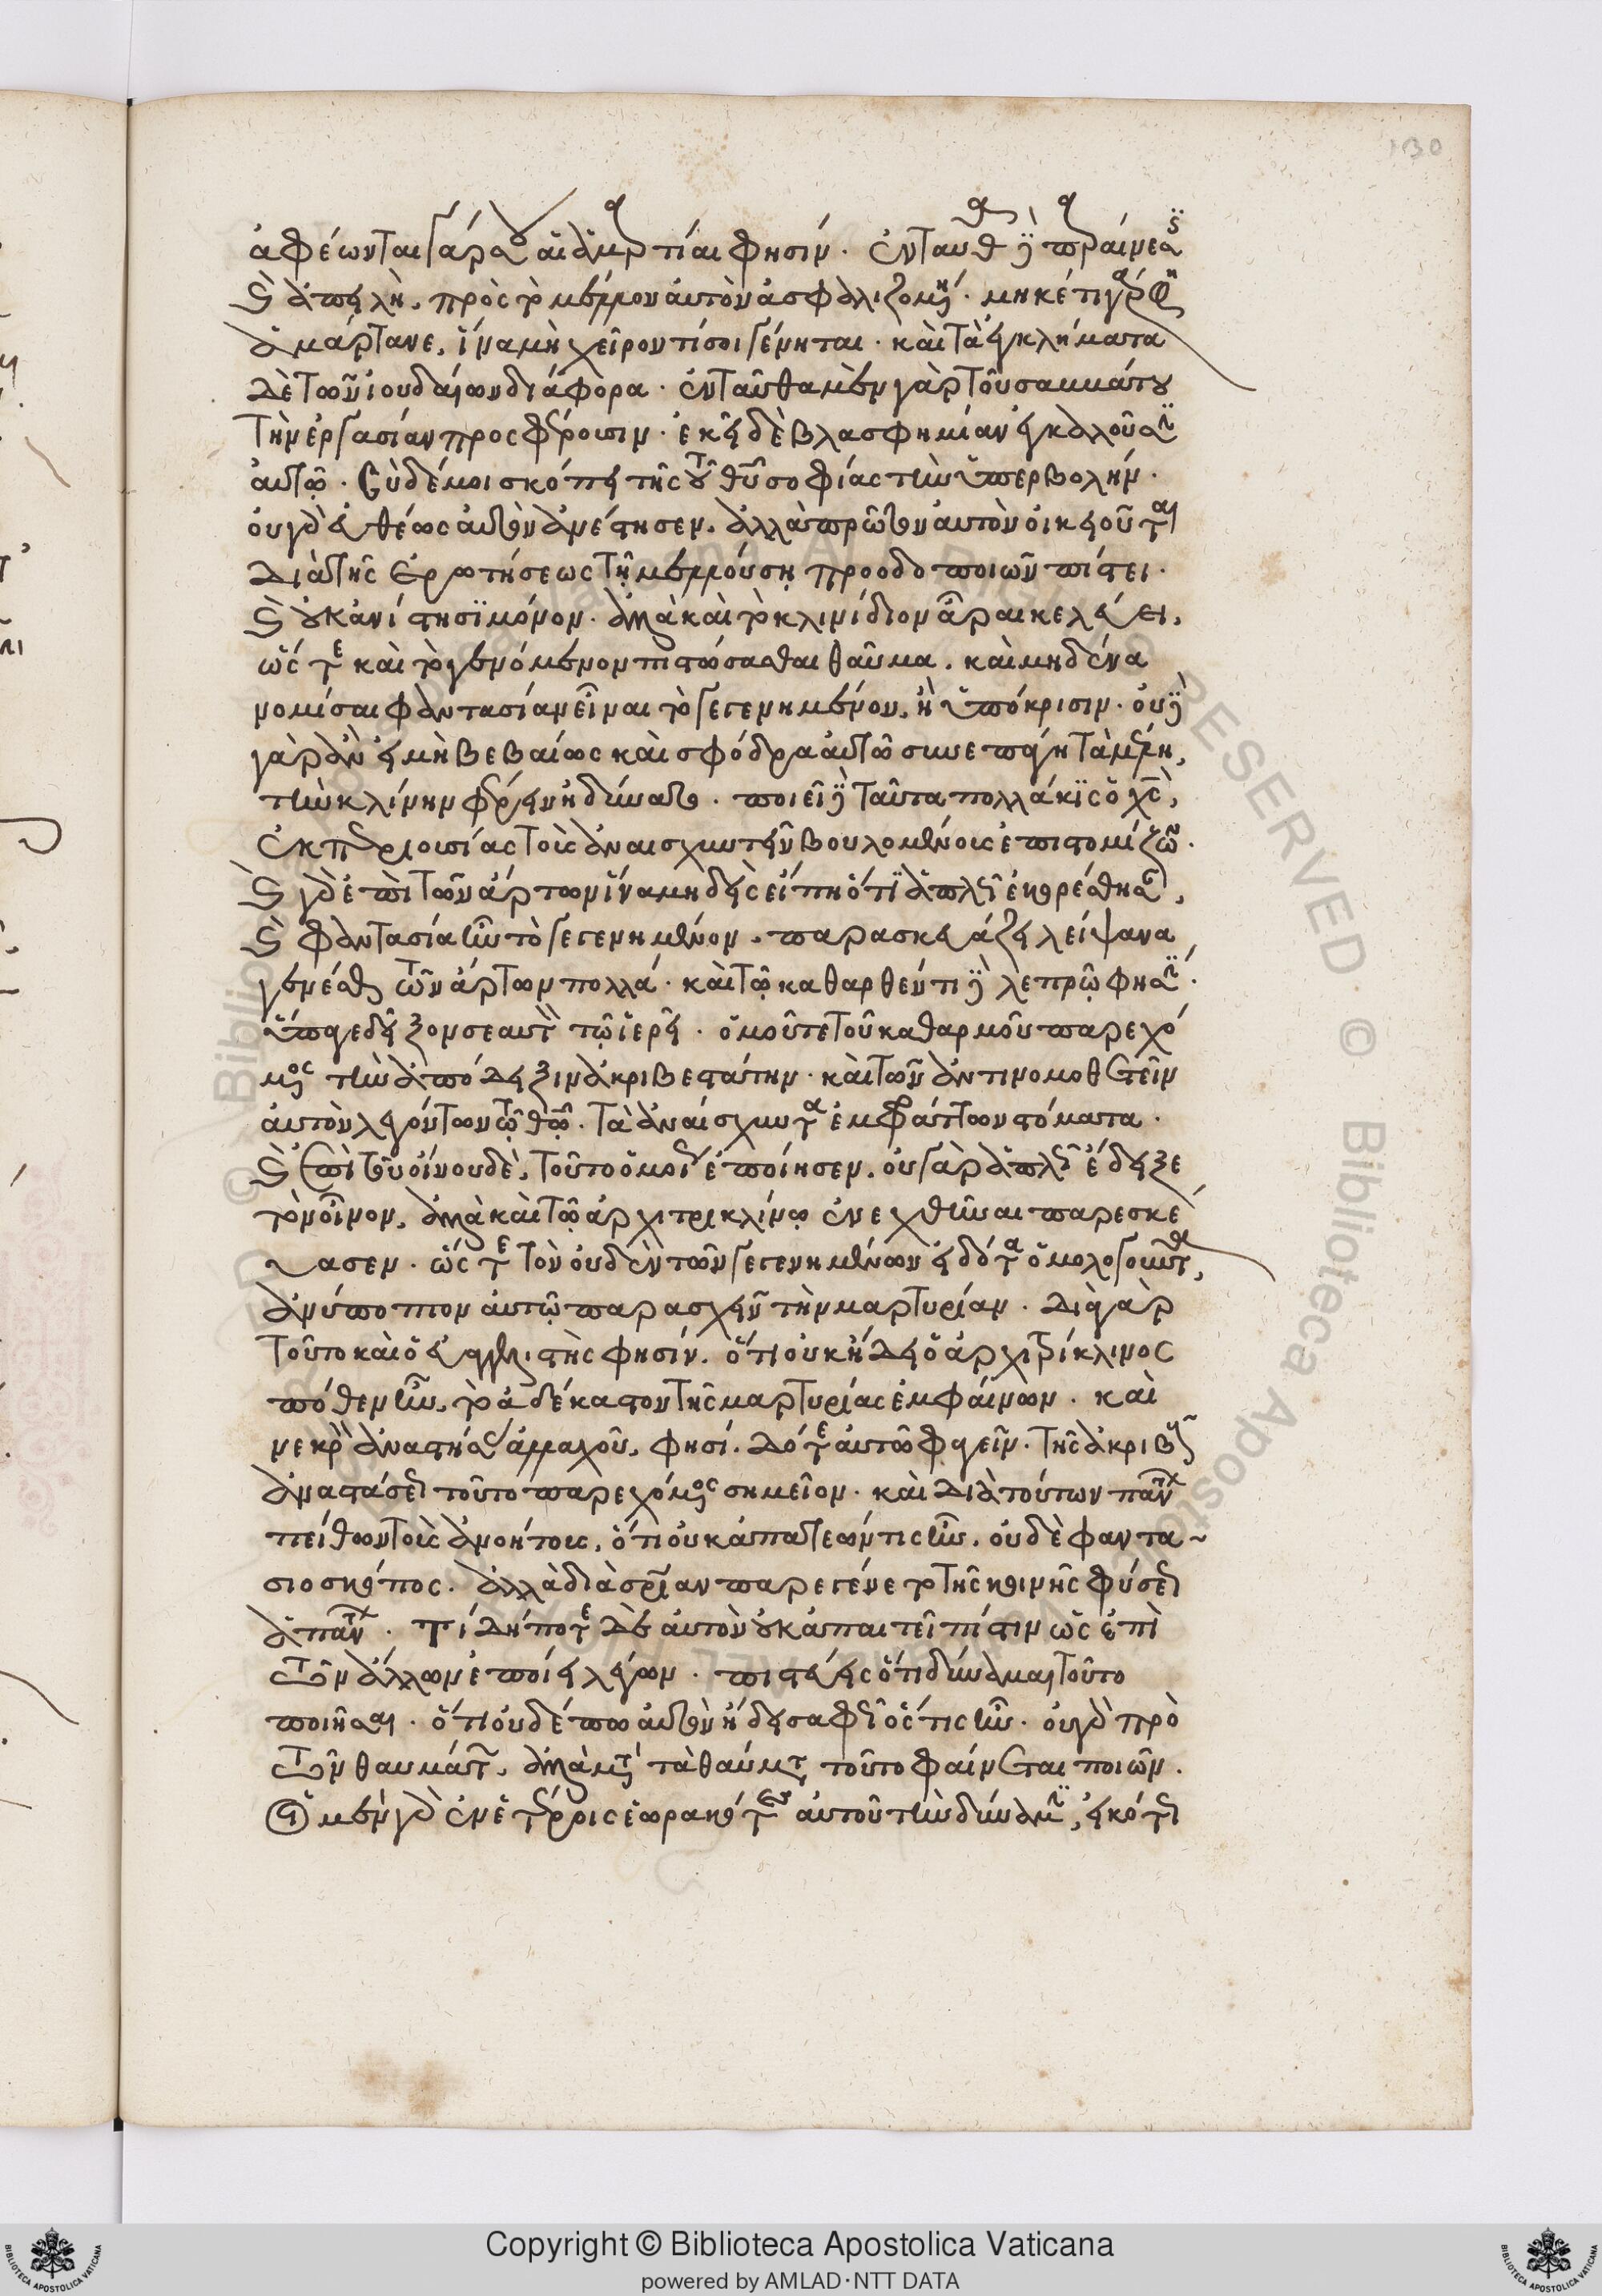 130
ἀφέωνταί γάρ σου αἱ ἁμαρτίαι φησίν. ἐνταῦθα δὲ παραίνεσις
καὶ ἀπειλὴ, πρὸς τὸ μέλλον αὐτὸν ἀσφαλιζομένη. μηκέτι γάρ φη
ἁμάρτανε, ἵνα μὴ χεῖρον τί σοι γένηται. καὶ τὰ ἐγκλήματα
δὲ τῶν ἰουδαίων διάφορα. ἐνταῦθα μὲν γὰρ τοῦ σαββάτου
τὴν ἐργασίαν προσφέρουσιν. ἐκεῖ δὲ βλασφημίαν ἐγκαλοῦσιν
αὐτῷ. σὺ δέ μοι σκόπει τῆς τοῦ θῦ σοφίας τὴν ὑπερβολήν.
οὐ γὰρ εὐθέως αὐτὸν ἀνέστησεν. ἀλλὰ πρῶτον αὐτὸν οἰκειοῦται
διὰ τῆς ἐρωτήσεως τῇ μελλούσῃ προοδοποιῶν πίστει.
καὶ οὐκ ἀνίστησι μόνον. ἀλλὰ καὶ τὸ κλινίδιον ἆραι κελεύει,
ὥστε καὶ τὸ γενόμενον πιστώσασθαι θαῦμα. καὶ μηδένα
νομίσαι φαντασίαν εἶναι τὸ γεγενημένον, ἢ ὑπόκρισιν. οὐδὲ
γὰρ ἂν εἰ μὴ βεβαίως καὶ σφόδρα αὐτῶ συνεπάγη τὰ μέλη,
τὴν κλίνην φέρειν ἠδύνατο. ποιεῖ δὲ ταῦτα πολλάκις ὁ χς,
ἐκ περιουσίας τοὺς ἀναισχυντεῖν βουλομένους ἐπιστομίζων.
καὶ γὰρ ἐπὶ τῶν ἄρτων ἵνα μηδεὶς εἴπη ὅτι ἁπλῶς ἐκορέσθησαν,
καὶ φαντασία ἦν τὸ γεγενημένον. παρασκευάζει λείψανα
γενέσθαι τῶν ἄρτων πολλά. καὶ τῷ καθαρθέντι δὲ λεπρῷ φησιν.
ὕπαγε δεῖξον σεαυτὸν τῷ ἱερεῖ. ὁμοῦ τε τοῦ καθαρμοῦ παρεχό
μενος τὴν ἀπόδειξιν ἀκριβεστάτην. καὶ τῶν ἀντινομοθετεῖν
αὐτὸν λεγόντων τῷ θῷ. τὰ ἀναίσχυντα ἐμφράττων στόματα.
καὶ ἐπὶ τοῦ οἴνου δὲ, τοῦτο ὁμοίως ἐποίησεν. οὐ γὰρ ἁπλῶς ἔδειξε
τὸν οἶνον, ἀλλὰ καὶ τῷ ἀρχιτρικλίνῳ ἐνεχθῆναι παρεσκεύ
ασεν. ὥστε τὸν οὐδὲν τῶν γεγενημένων εἰδότα ὁμολογοῦντα,
ἀνύποπτον αὐτῷ παρασχεῖν τὴν μαρτυρίαν. διὰ γὰρ
τοῦτο καὶ ὁ εὐαγγελιστής φησίν. ὅτι οὐκ ἤδει ὁ ἀρχιτρίκλινος
πόθεν ἦν, τὸ ἀδέκαστον τῆς μαρτυρίας ἐμφαίνων. καὶ
νεκρὸν ἀναστήσας ἀλλαχοῦ, φησί. δότε αὐτῶ φαγεῖν. τῆς ἀκριβοῦς
ἀναστάσεως τοῦτο παρεχόμενος σημεῖον. καὶ διὰ τούτων πάντων
πείθων τοὺς ἀνοήτους, ὅτι οὐκ ἀπατεών τις ἦν, οὐδὲ φαντα
σιοσκόπος. ἀλλὰ διὰ σρίαν παρεγένετο τῆς κοινῆς φύσεως
ἁπάντων. τί δήποτε δὲ αὐτὸν οὐκ ἀπαιτεῖ πίστιν ὡς ἐπὶ
τῶν ἄλλων ἐποίει λέγων. πιστεύεις ὅτι δύναμαι τοῦτο
ποιῆσαι. ὅτι οὐδέπω αὐτὸν ἤδει σαφῶς ὅστις ἦν. οὐ γὰρ πρὸ
τῶν θαυμάτων, ἀλλὰ μετὰ τὰ θαύματα τοῦτο φαίνεται ποιῶν.
οἱ μὲν γὰρ ἐν ἑτέροις ἑωρακότες αὐτοῦ τὴν δύναμιν, εἰκότως
Copyright © Biblioteca Apostolica Vaticana
powered by AMLAD·NTT DATA